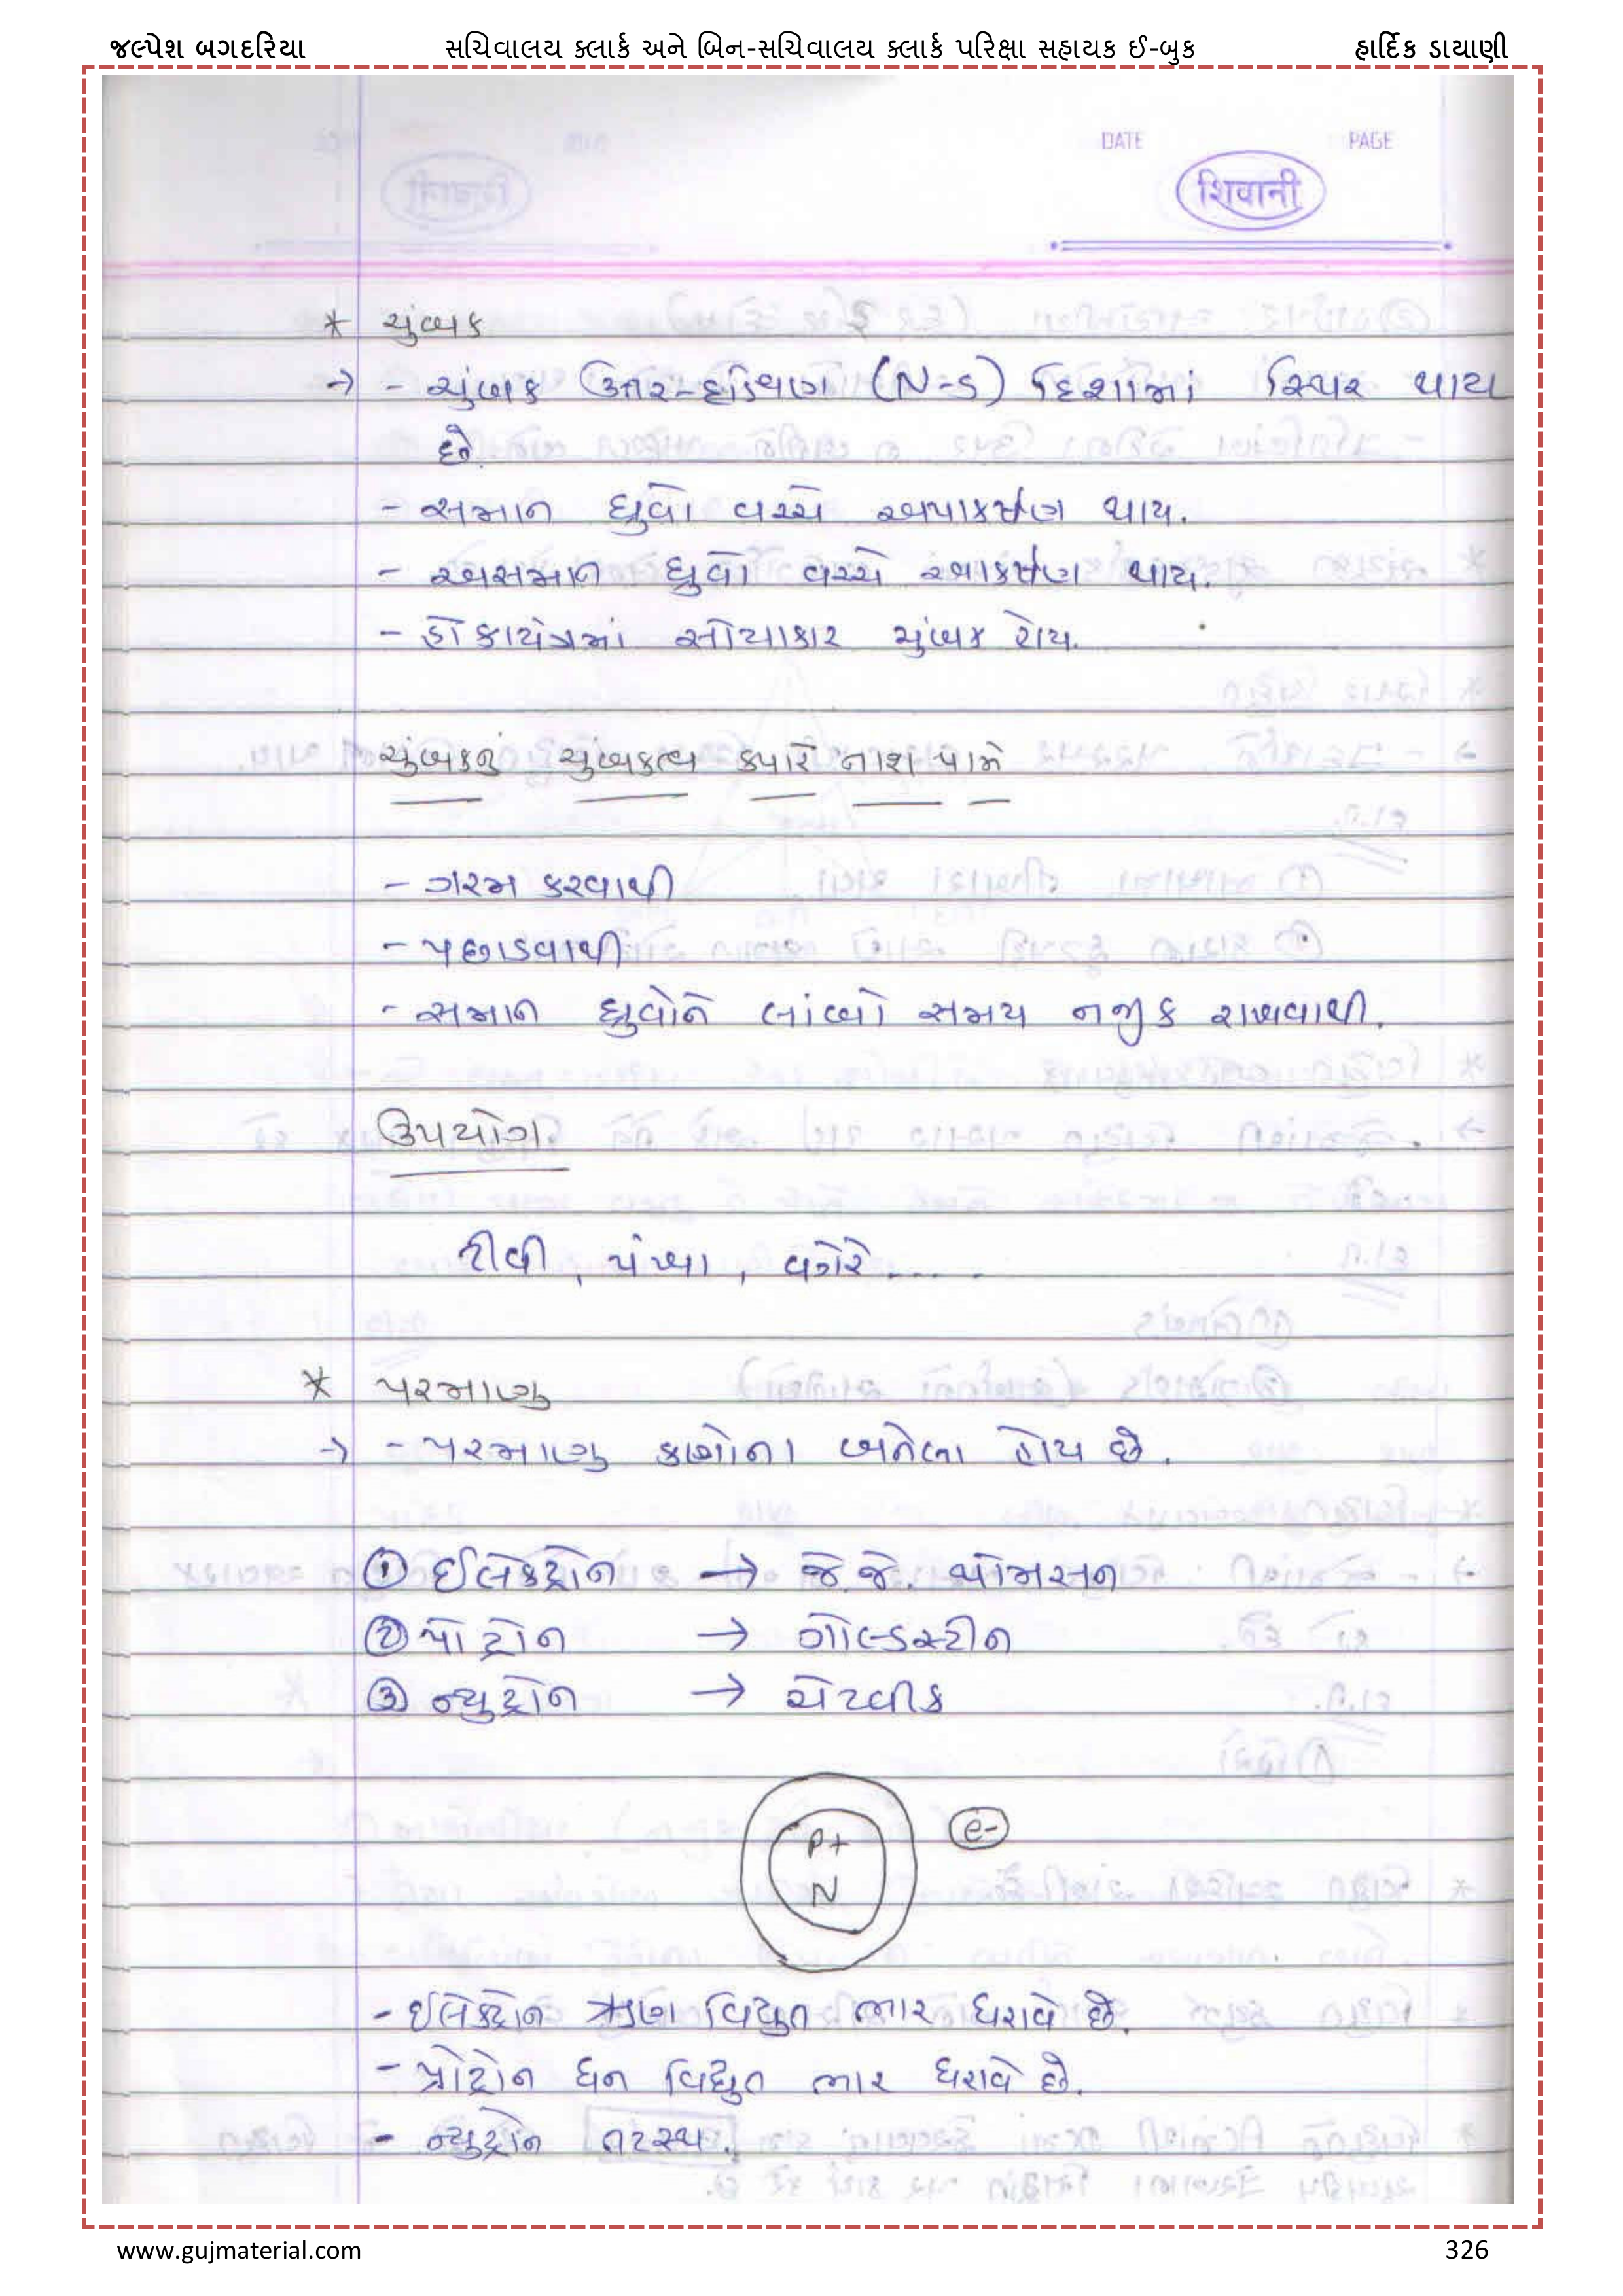 જલ્પેશ બગદરિયા સચિવાલય ક્લાર્ક અને બિન-સચિવાલય ક્લાર્ક પરિક્ષા સહાયક ઈ-બુક હાર્દિક ડાયાણી
DATE PAGE
शिवानी
* ચુંબક
→ - ચુંબક ઉત્તર-દક્ષિણ (N-S) દિશામાં સ્થિર થાય
છે.
- સમાન ધ્રુવો વચ્ચે અપાકર્ષણ થાય.
- અસમાન ધ્રુવો વચ્ચે આકર્ષણ થાય.
- હોકાયંત્રમાં સોયાકાર ચુંબક હોય.
ચુંબકનું ચુંબકત્વ ક્યારે નાશ પામે
- ગરમ કરવાથી
- પછાડવાથી
- સમાન ધ્રુવોને લાંબો સમય નજીક રાખવાથી.
ઉપયોગ
ટીવી, પંખા, વગેરે.....
* પરમાણુ
→ - પરમાણુ કણોના બનેલા હોય છે.
① ઈલેક્ટ્રોન → જે.જે. થોમસન
② પોટ્રોન → ગોલ્ડસ્ટીન
③ ન્યુટ્રોન → ચેટવીક
P+
N
e-
- ઈલેક્ટ્રોન ઋણ વિદ્યુત ભાર ધરાવે છે.
- પ્રોટ્રોન ધન વિદ્યુત ભાર ધરાવે છે.
- ન્યુટ્રોન તટસ્થ.
www.gujmaterial.com 326